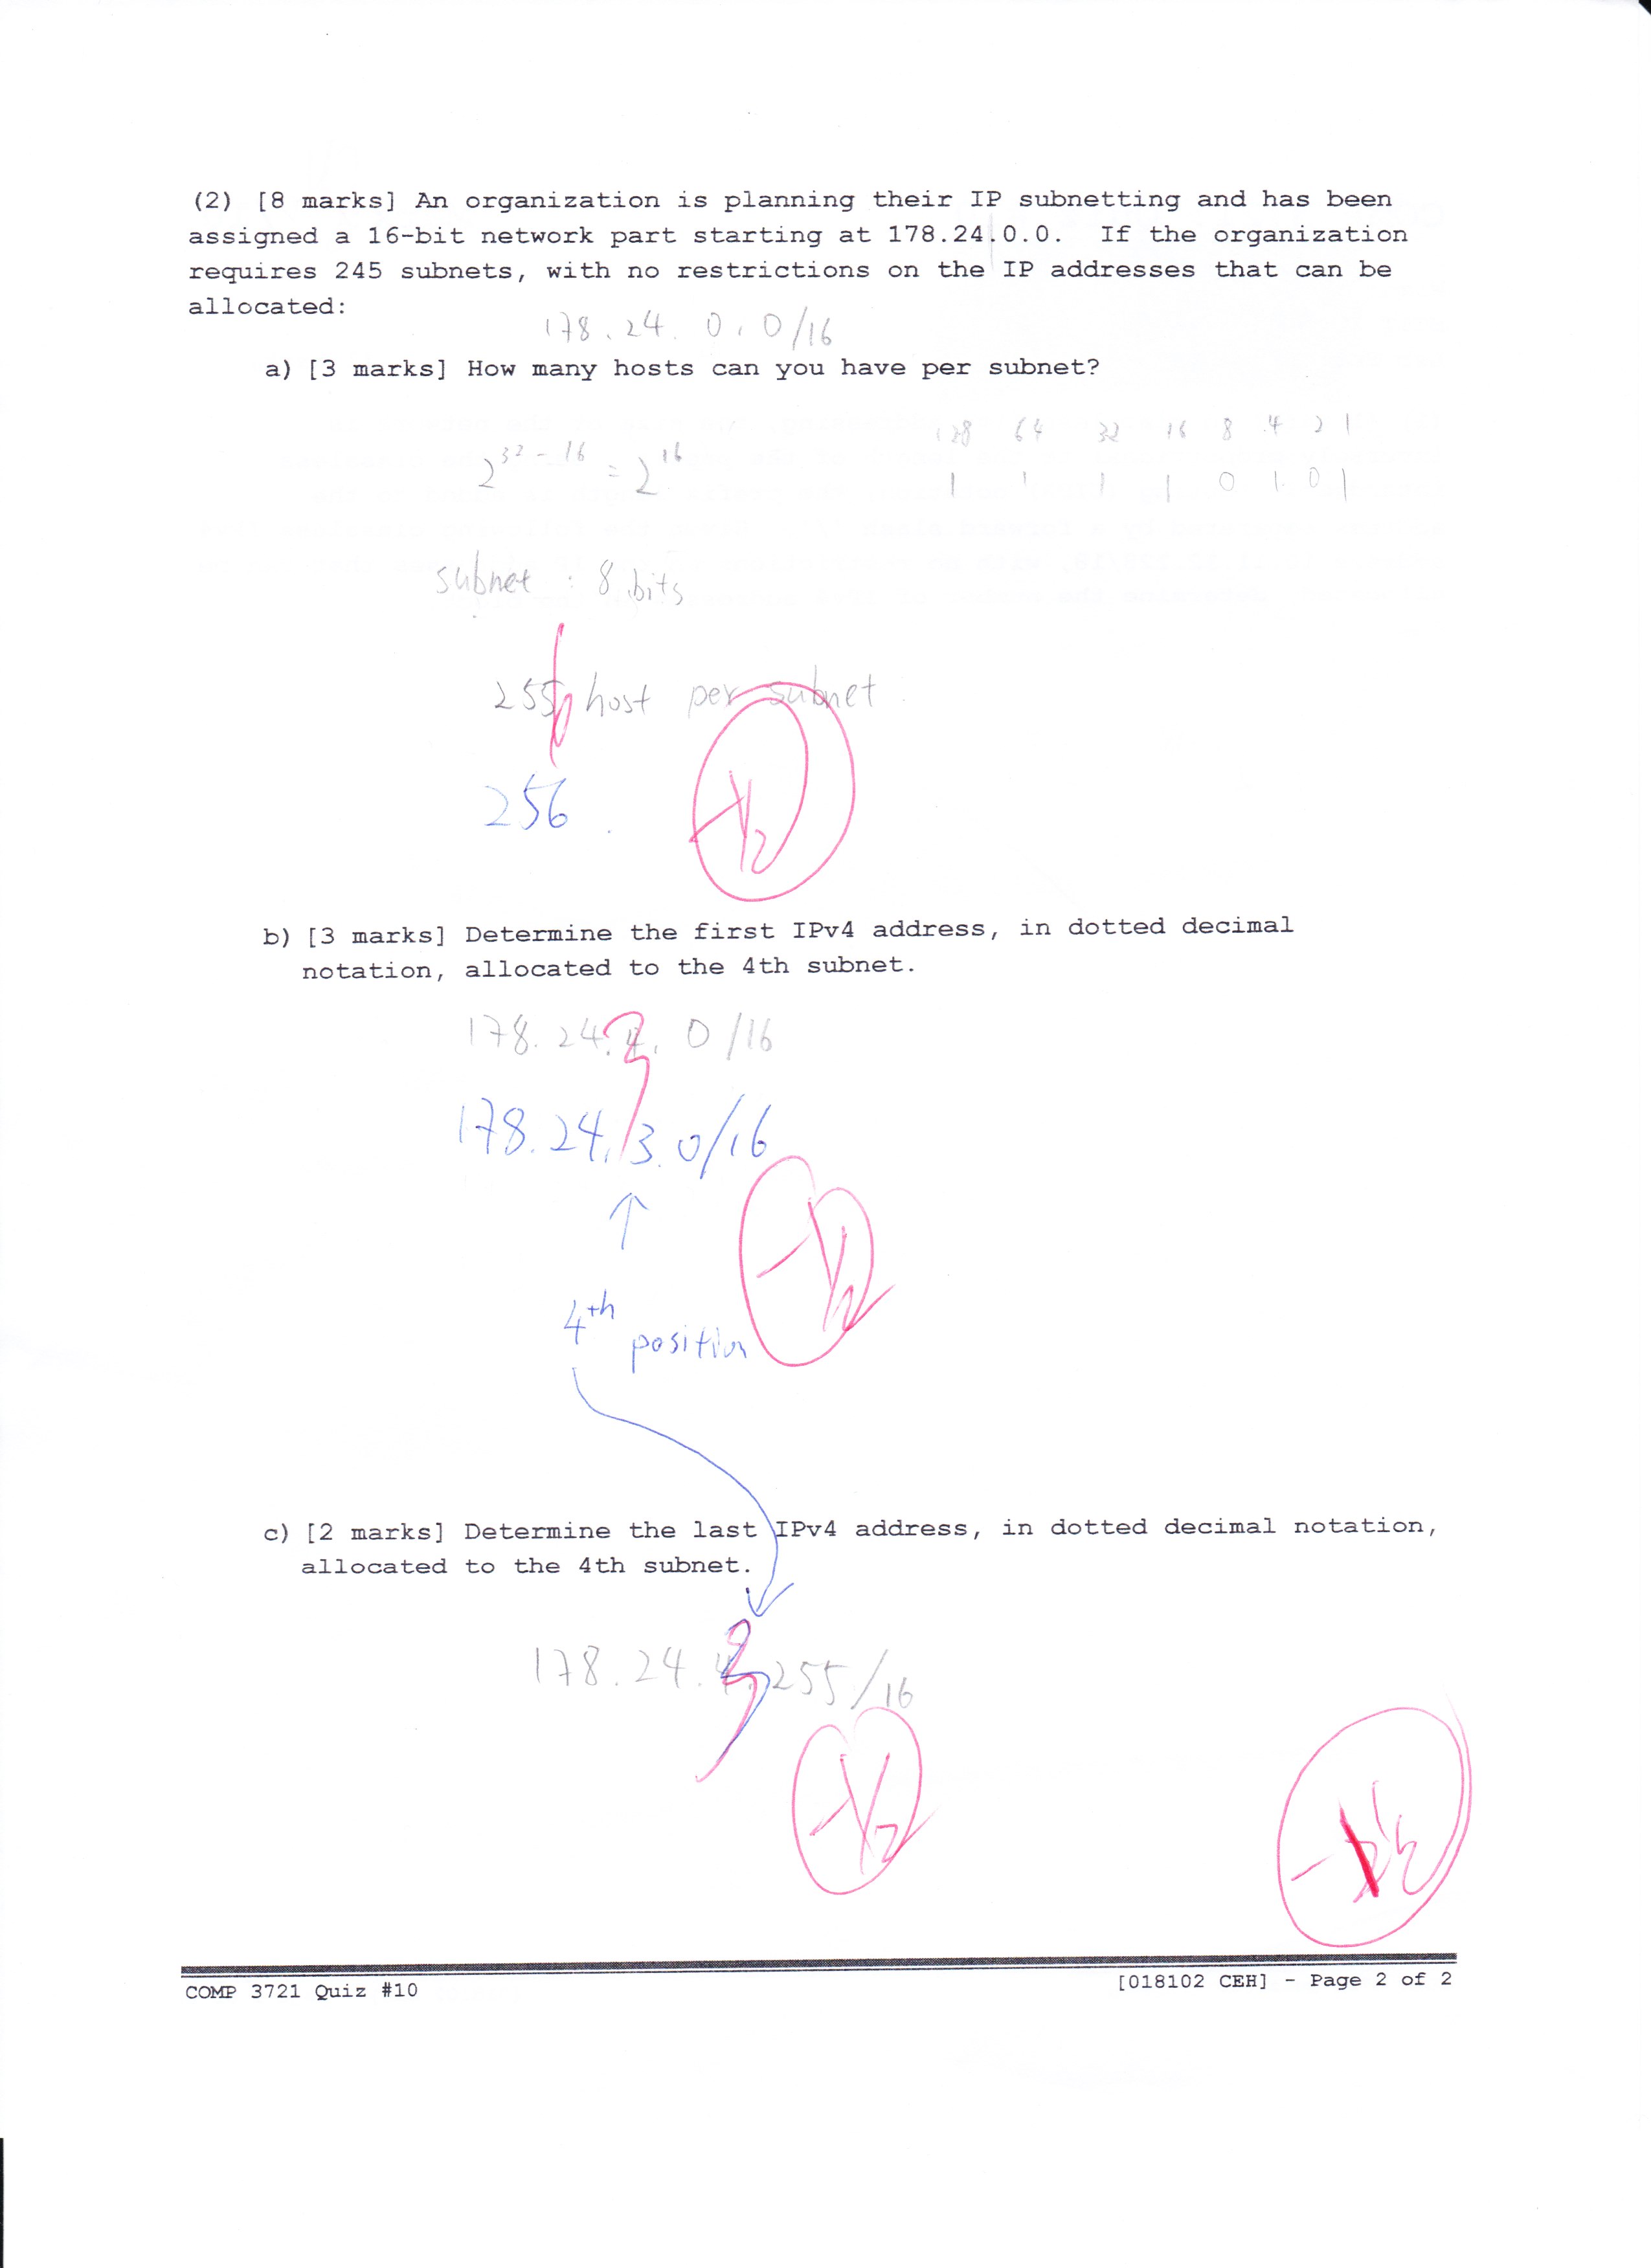 (2) [8 marks] An organization is planning their IP subnetting and has been
assigned a 16-bit network part starting at 178.24.0.0. If the organization
requires 245 subnets, with no restrictions on the IP addresses that can be
allocated:
178.24.0.0/16
a) [3 marks] How many hosts can you have per subnet?
128 64 32 16 8 4 2 1
2^32-16 = 2^16
1 1 1 1 0 1 0 1
subnet : 8 bits
255 host per subnet
256
-1/2
b) [3 marks] Determine the first IPv4 address, in dotted decimal
notation, allocated to the 4th subnet.
178.24.4.0/16
178.24.3.0/16
-1/2
4th
position
c) [2 marks] Determine the last IPv4 address, in dotted decimal notation,
allocated to the 4th subnet.
178.24.4.255/16
-1/2
COMP 3721 Quiz #10
[018102 CEH] - Page 2 of 2